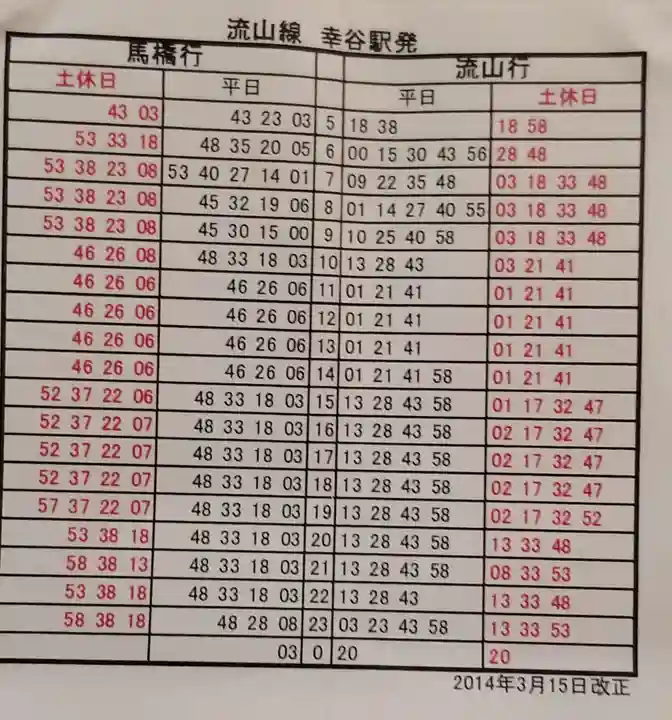 流山線 幸谷駅発
馬橋行 流山行
土休日 平日 平日 土休日
43 03 43 23 03 5 18 38 18 58
53 33 18 48 35 20 05 6 00 15 30 43 56 28 48
53 38 23 08 53 40 27 14 01 7 09 22 35 48 03 18 33 48
53 38 23 08 45 32 19 06 8 01 14 27 40 55 03 18 33 48
53 38 23 08 45 30 15 00 9 10 25 40 58 03 18 33 48
46 26 08 48 33 18 03 10 13 28 43 03 21 41
46 26 06 46 26 06 11 01 21 41 01 21 41
46 26 06 46 26 06 12 01 21 41 01 21 41
46 26 06 46 26 06 13 01 21 41 01 21 41
46 26 06 46 26 06 14 01 21 41 58 01 21 41
52 37 22 06 48 33 18 03 15 13 28 43 58 01 17 32 47
52 37 22 07 48 33 18 03 16 13 28 43 58 02 17 32 47
52 37 22 07 48 33 18 03 17 13 28 43 58 02 17 32 47
52 37 22 07 48 33 18 03 18 13 28 43 58 02 17 32 47
57 37 22 07 48 33 18 03 19 13 28 43 58 02 17 32 52
53 38 18 48 33 18 03 20 13 28 43 58 13 33 48
58 38 13 48 33 18 03 21 13 28 43 58 08 33 53
53 38 18 48 33 18 03 22 13 28 43 13 33 48
58 38 18 48 28 08 23 03 23 43 58 13 33 53
03 0 20 20
2014年3月15日改正